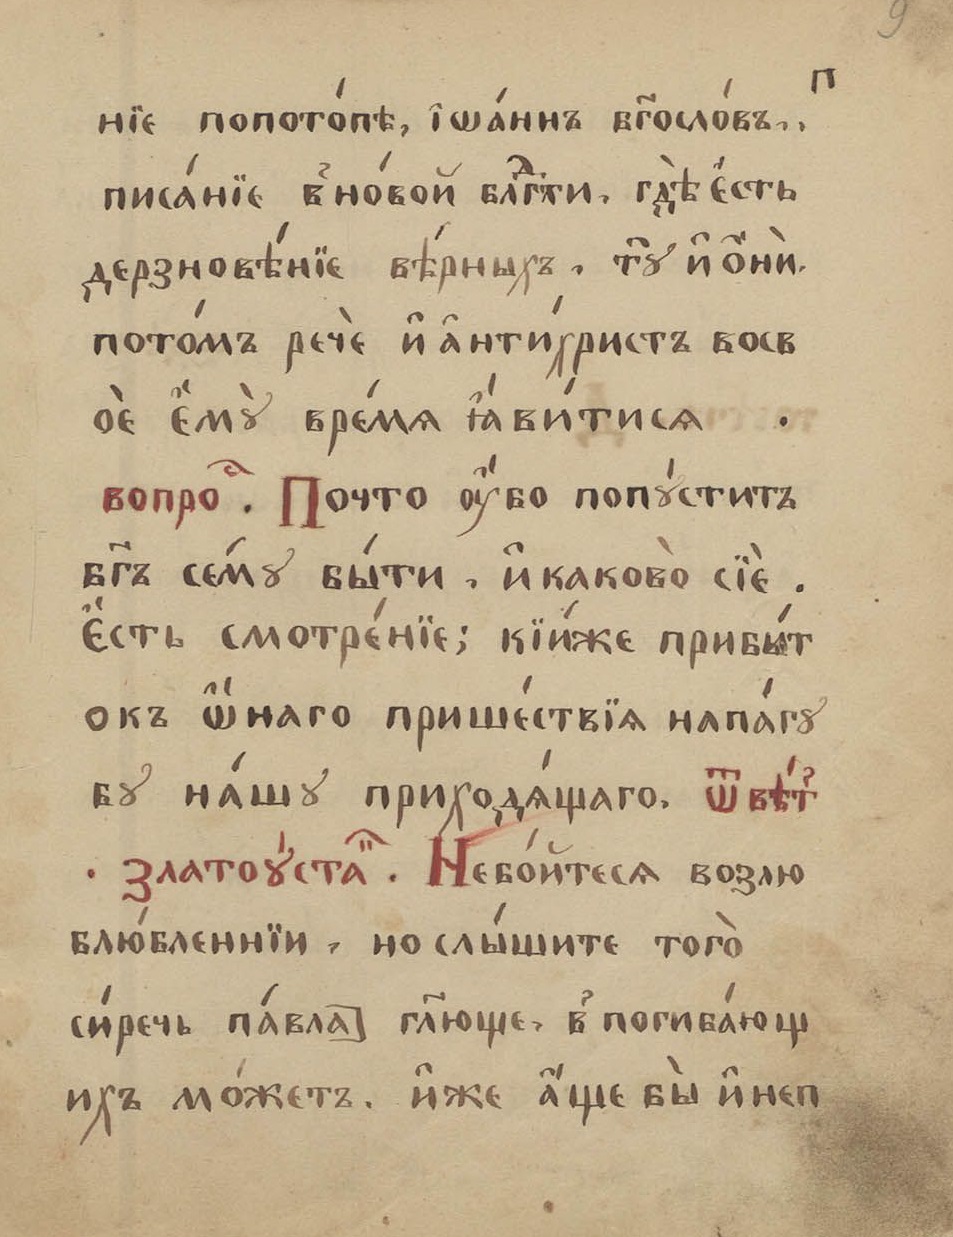 9
п
нїе попото́пѣ, і҆ѡа́ннъ бг҃осло́въ,,
писа́нїе в̾но́вой бл҃гдти, гдѣ̀ є҆́сть
дерзновѣ́нїе вѣ́рныхъ, тꙋ̀ и҆ ѻ҆нѝ,
пото́мъ речѐ и҆ а҆нти́христъ восв
оѐ є҆мꙋ̀ вре́мѧ ꙗ҆ви́тисѧ .
вопро́с . Почто ᲂу҆́бо попꙋ́ститъ
бг҃ъ семꙋ̀ бы́ти, и҆ каково̀ сїѐ .
є҆́сть смотре́нїе; кїи́же прибы́т
окъ ѡ҆́наго прише́ствїѧ напа́гꙋ
бꙋ на́шꙋ приходѧ́щаго. ѿвѣ́т
. златоꙋ́стаг . Небо́йтесѧ возлю
блю́бленнїи, но слы́шите того̀
си́речь па́вла] гл҃юще, в̾ погиба́ющ
ихъ мо́жетъ. и҆́же а҆́ще бы̀ и҆ неп